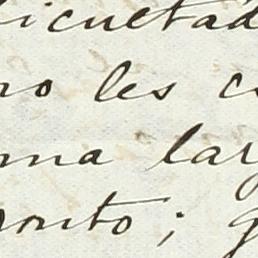 icultad
no les c
ma lar
onto; g